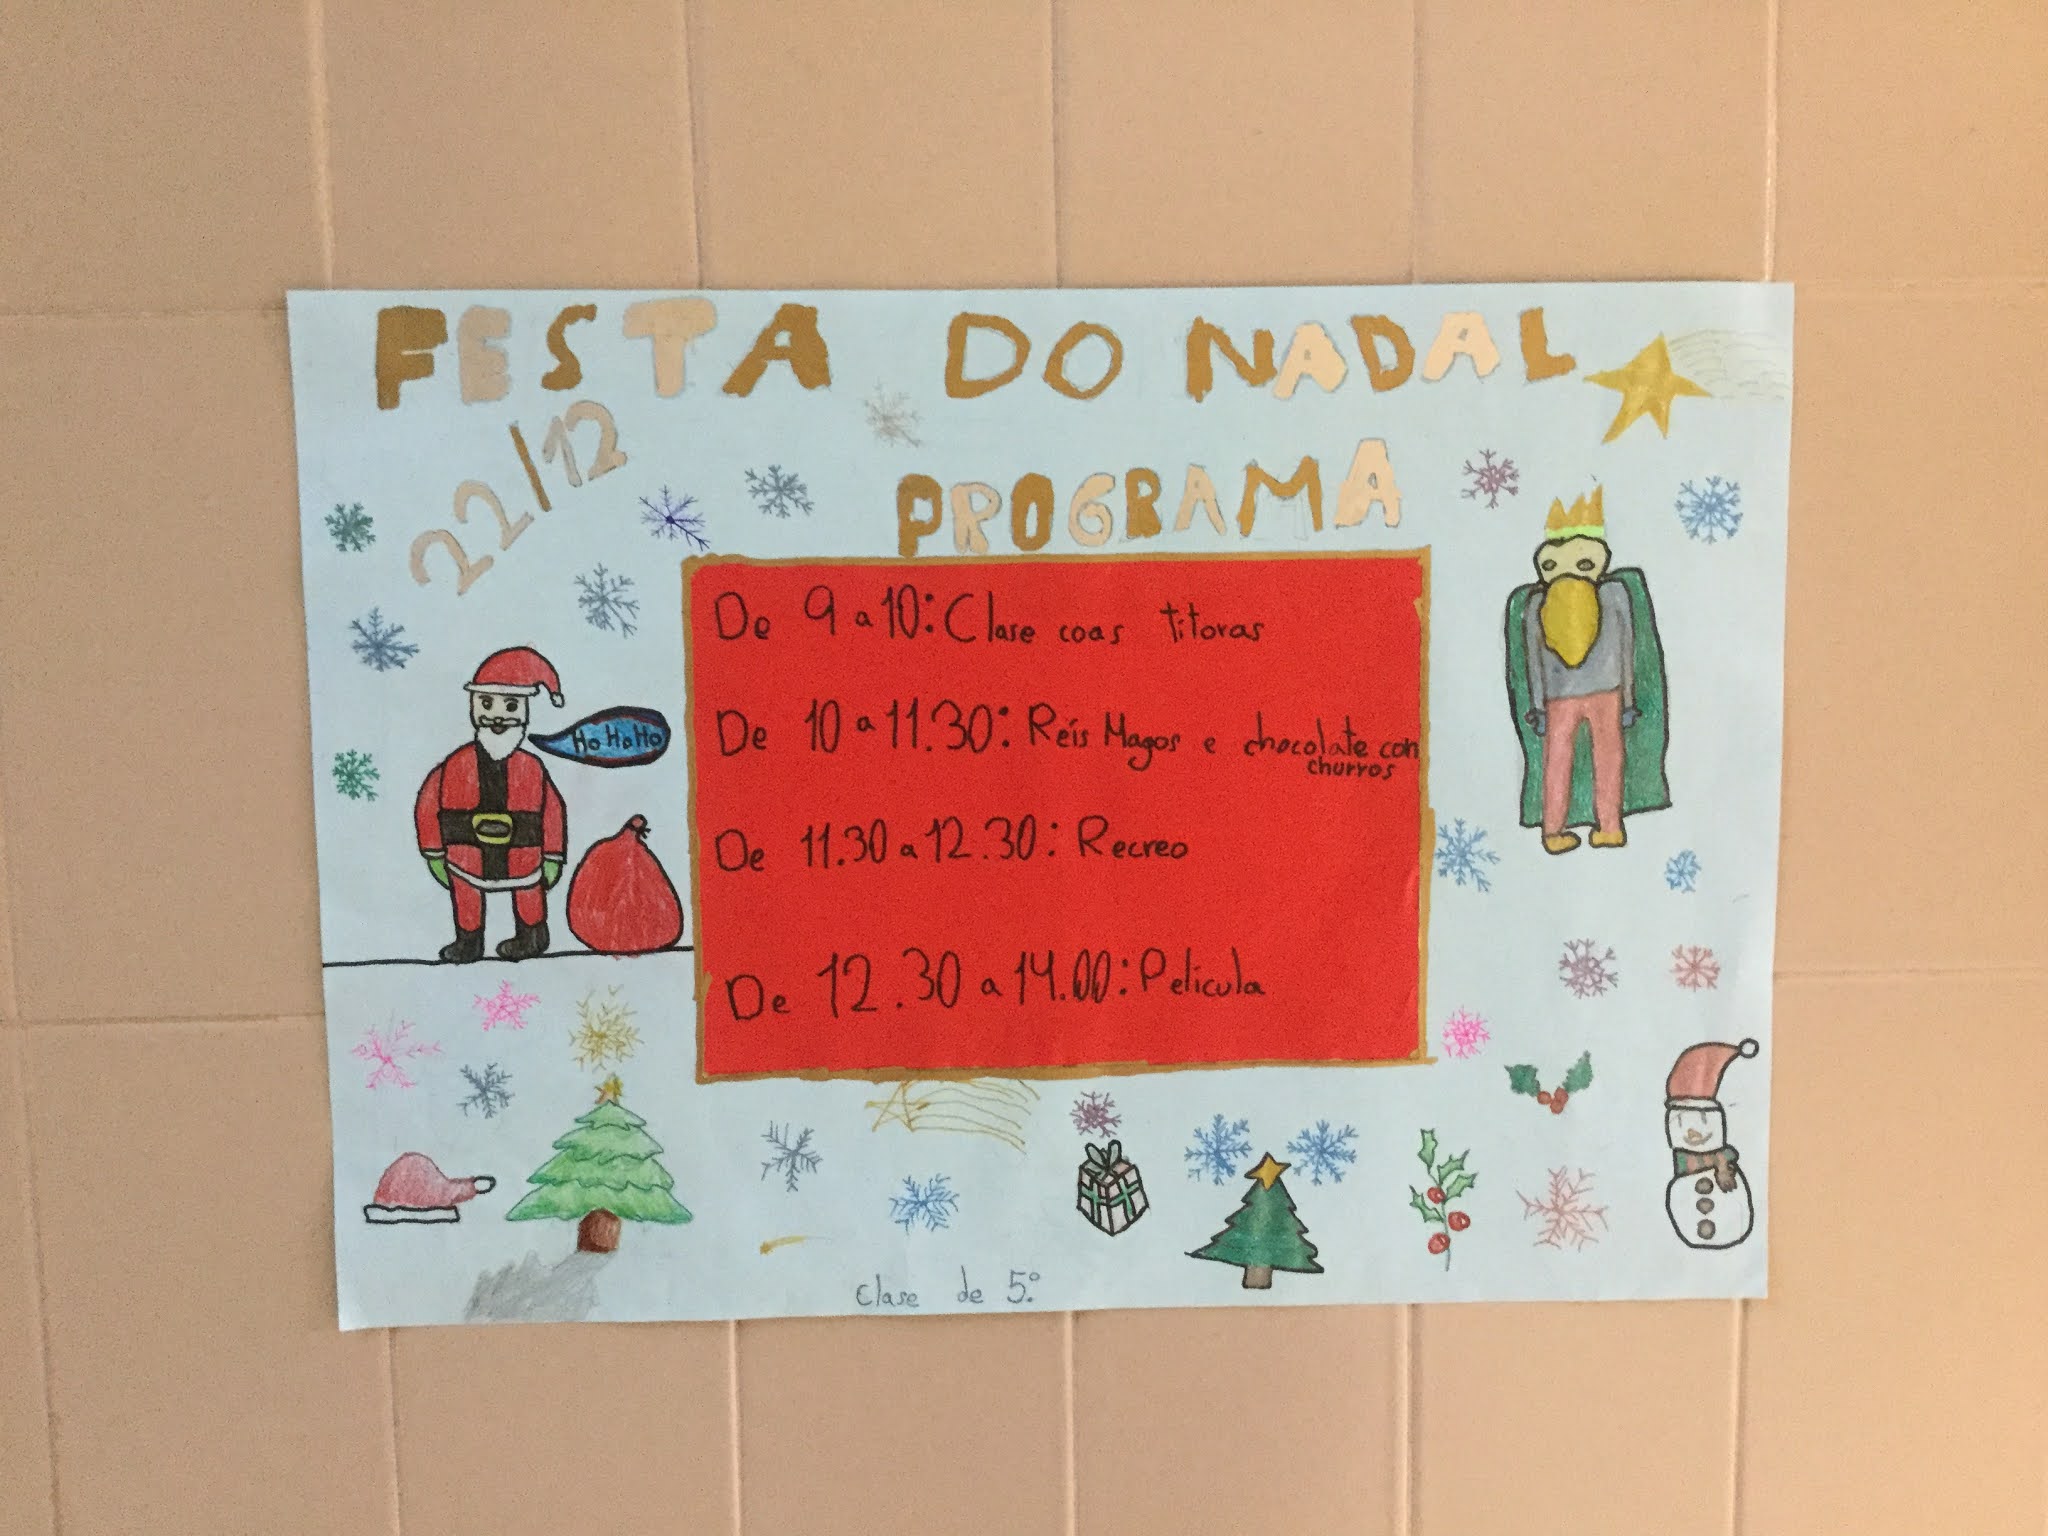 FESTA DO NADAL
22/12
PROGRAMA
De 9 a 10: Clase coas titoras
De 10 a 11.30: Reis Magos e chocolate con
churros
Ho Ho Ho
De 11.30 a 12.30: Recreo
De 12.30 a 14.00: Pelicula
Clase de 5º